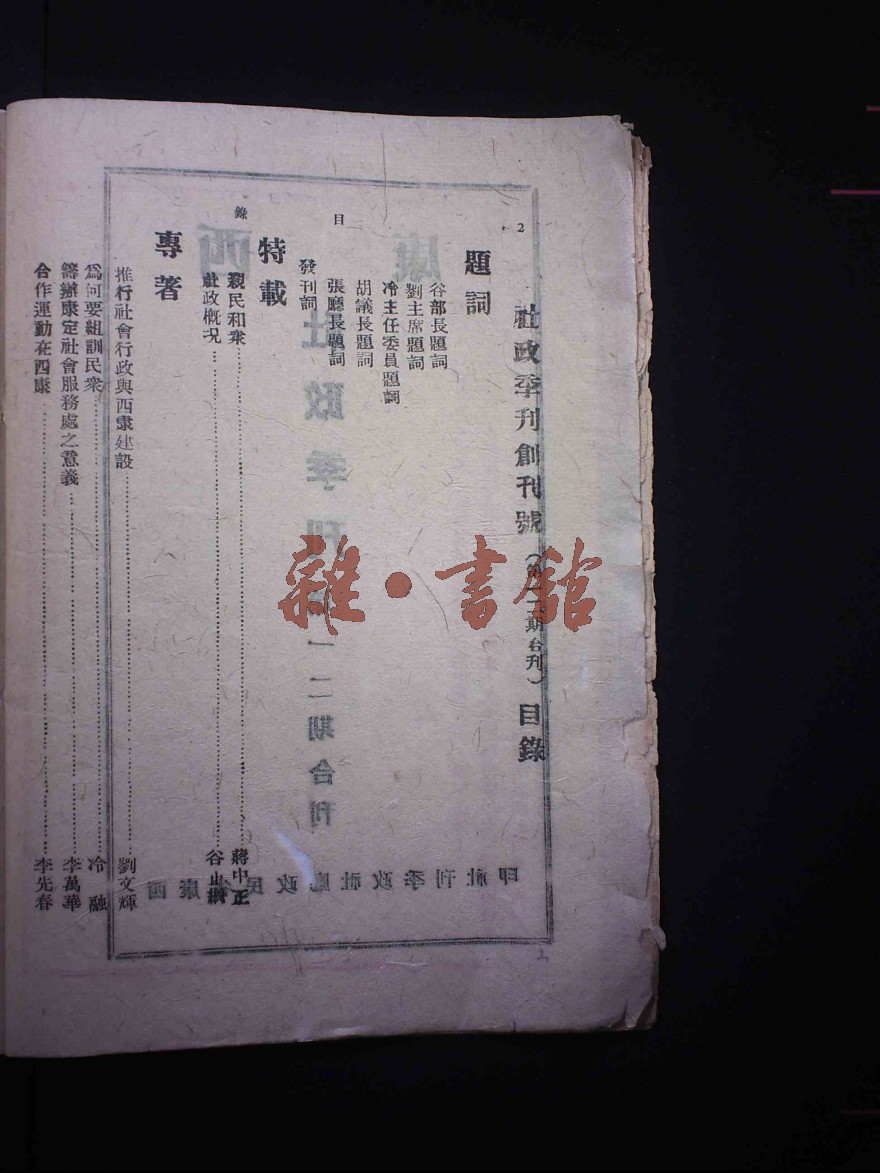 2
社政季刊創刊號（第一二期合刊）目錄
題詞
谷部長題詞
劉主席題詞
冷主任委員題詞
胡議長題詞
張廳長題詞
目
發刊詞
特載
錄
親民和衆 蔣中正
社政概况 谷正綱
專著
推行社會行政與西康建設 劉文輝
爲何要組訓民衆 冷融
籌辦康定社會服務處之意義 李萬華
合作運動在西康 李先春
雜·書館
西康
社政季刊
第一二期合刊
西康省民政廳社政季刊社印